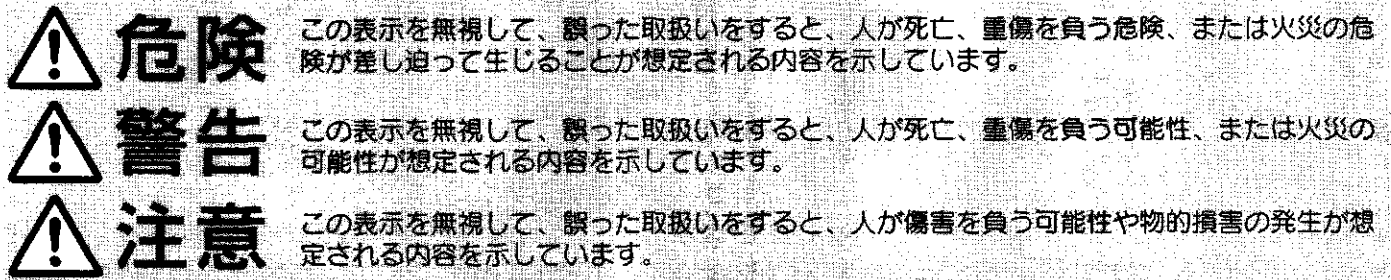 危険
この表示を無視して、誤った取扱いをすると、人が死亡、重傷を負う危険、または火災の危
険が差し迫って生じることが想定される内容を示しています。
警告
この表示を無視して、誤った取扱いをすると、人が死亡、重傷を負う可能性、または火災の
可能性が想定される内容を示しています。
注意
この表示を無視して、誤った取扱いをすると、人が傷害を負う可能性や物的損害の発生が想
定される内容を示しています。